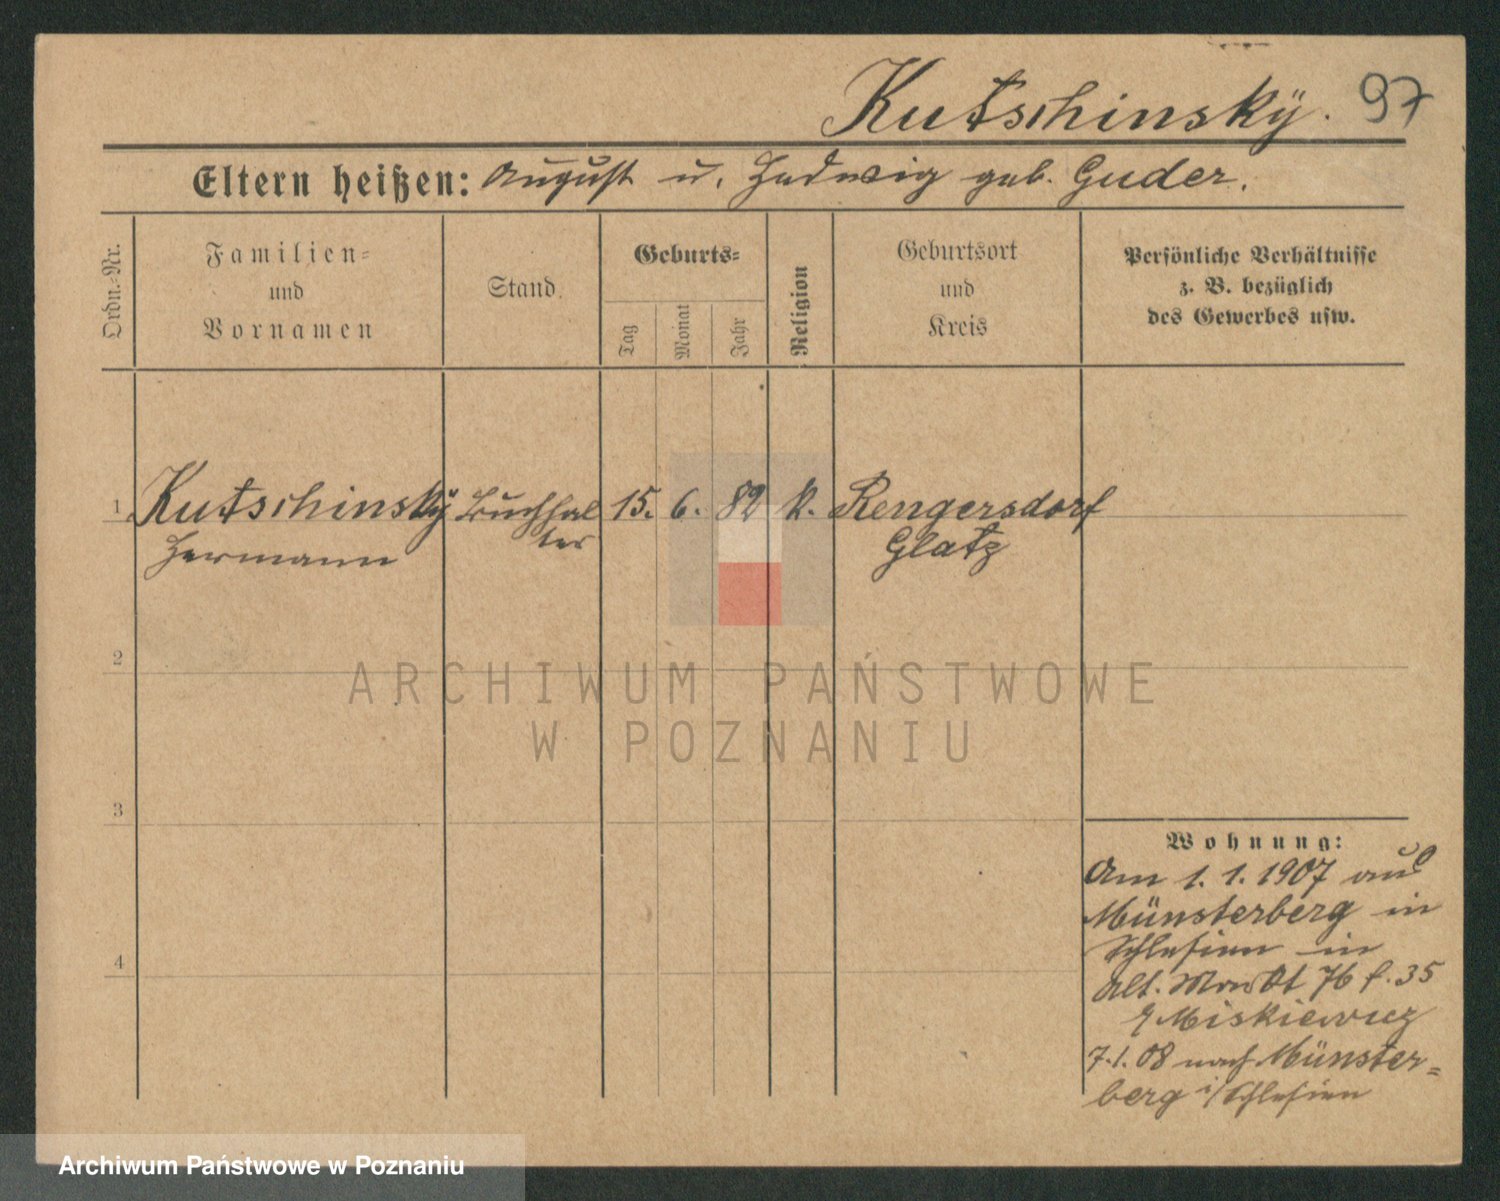 Kutschinskÿ. 97
Eltern heißen: August u. Hedwig geb. Guder.
Ordn.-Nr.
Familien-
und
Vornamen
Stand
Geburts-
Tag
Monat
Jahr
Religion
Geburtsort
und
Kreis
Persönliche Verhältnisse
z. B. bezüglich
des Gewerbes usw.
1 Kutschinskÿ Buchhal 15. 6. 82 k. Rengersdorf
Hermann ter Glatz
2
3
4
Wohnung:
Am 1. 1. 1907 aus
Münsterberg in
Schlesien in
Alt. Markt 76 f. 35
Miskiewicz
7.1.08 nach Münster-
berg i/Schlesien
ARCHIWUM PAŃSTWOWE
W POZNANIU
Archiwum Państwowe w Poznaniu